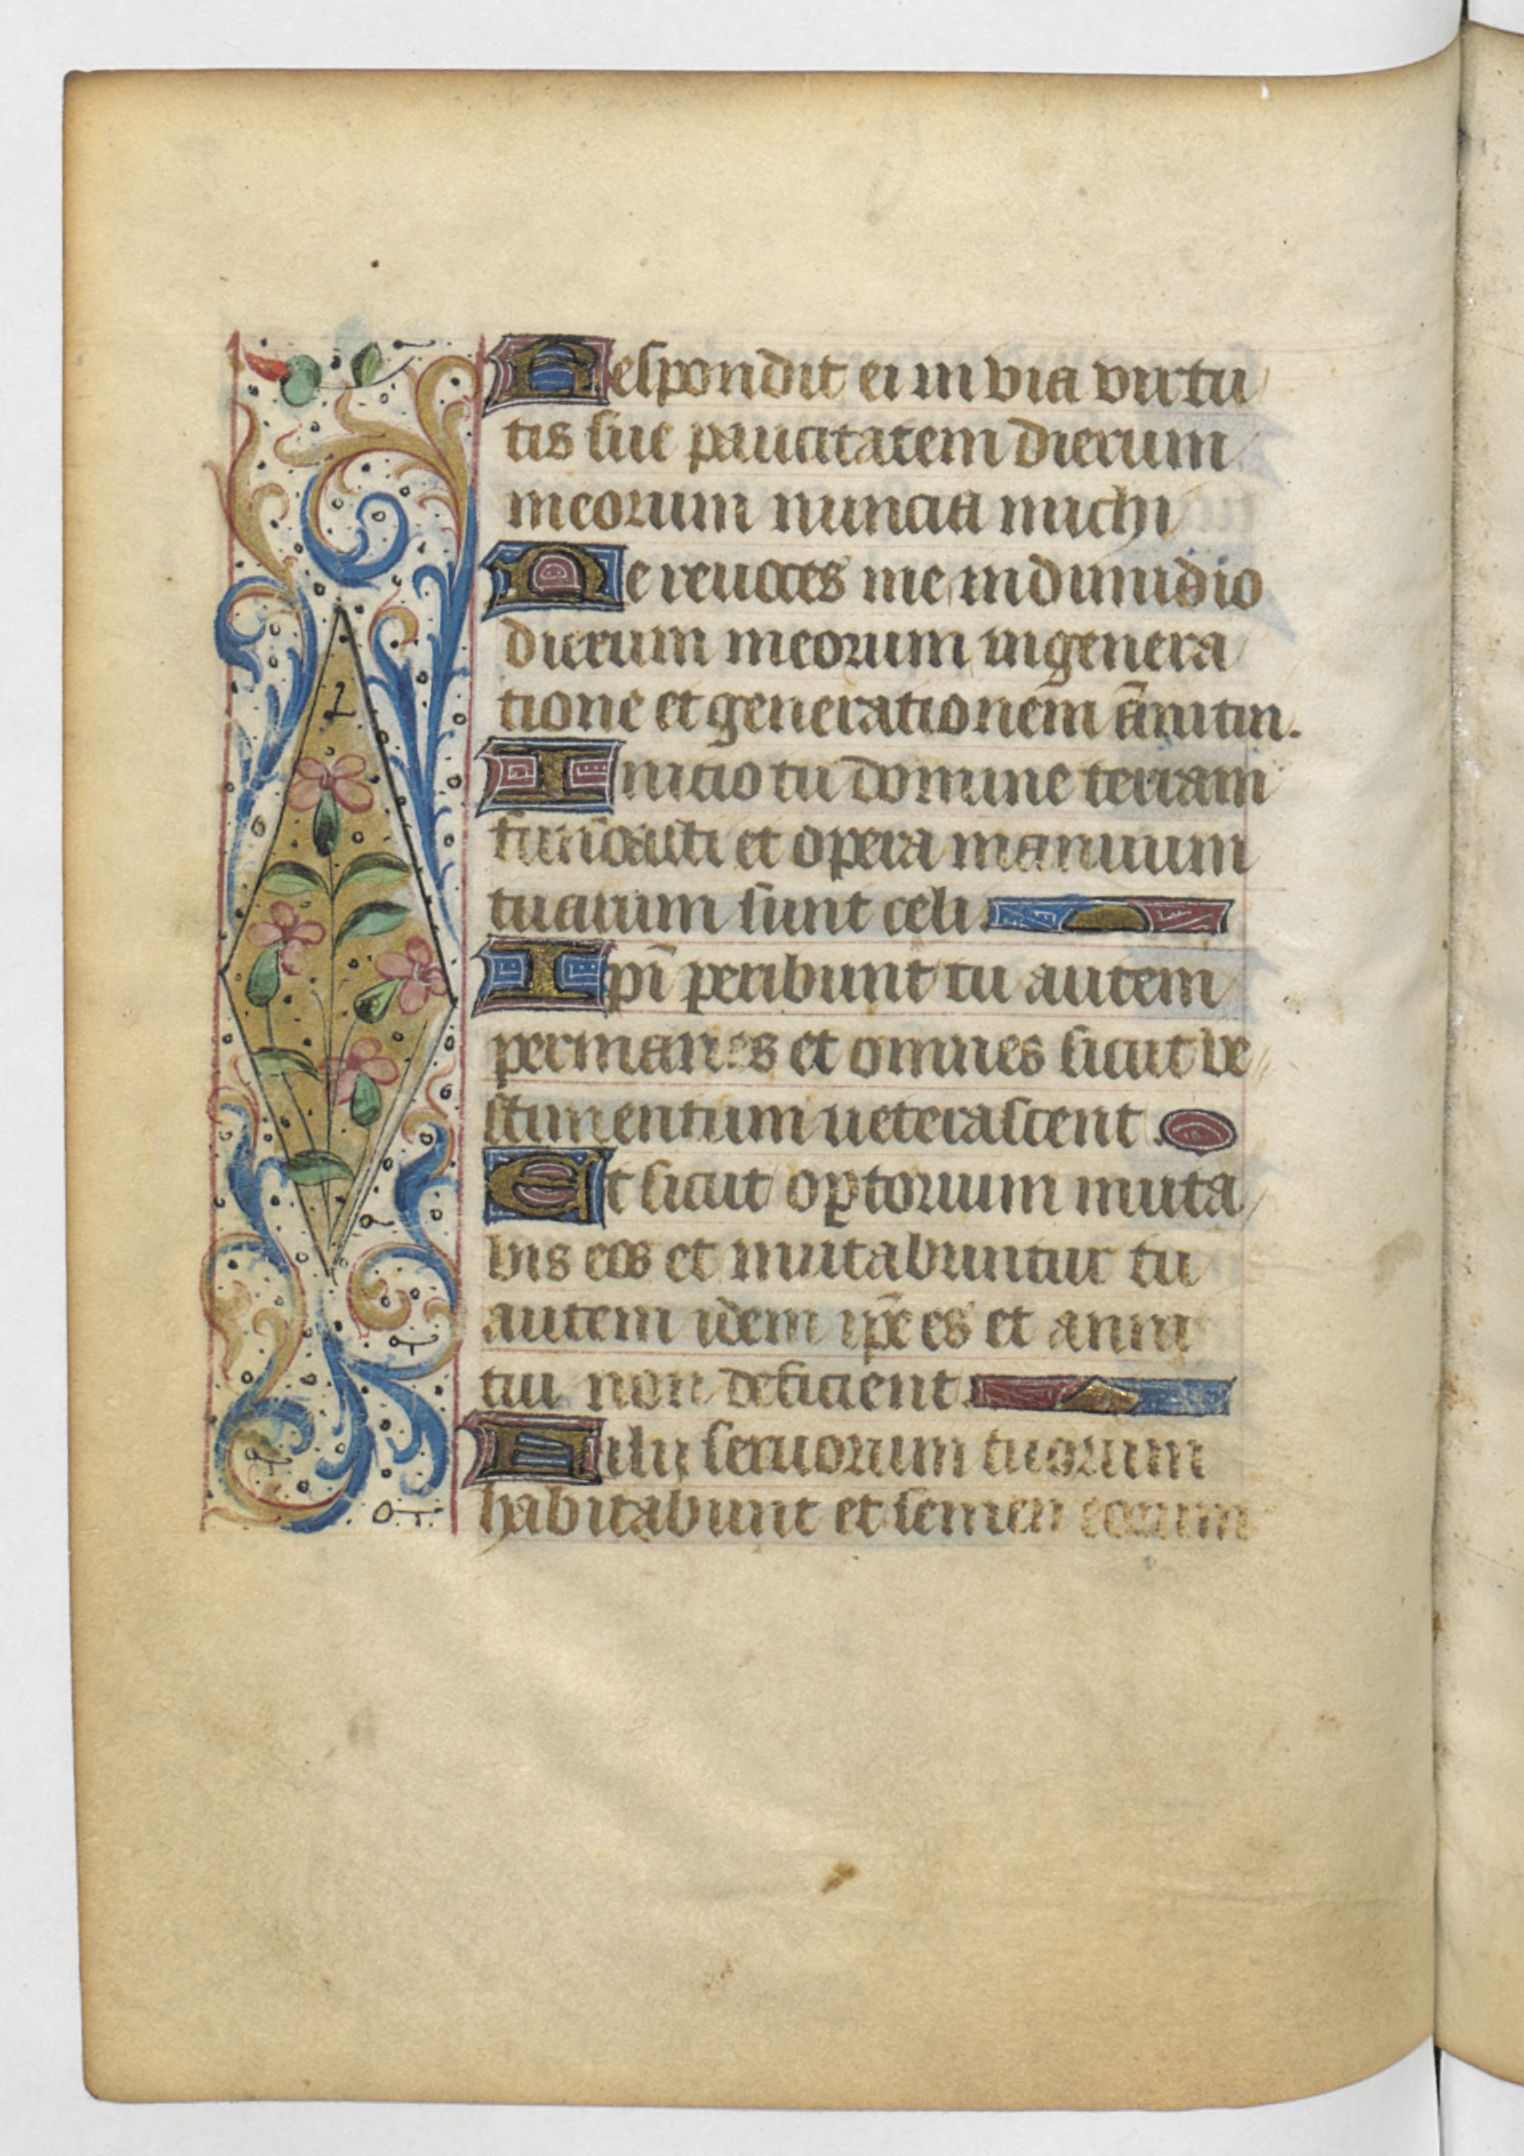 Respondit ei in via virtu
tis sue paucitatem dierum
meorum nuncia michi
Ne reuoces me in dimidio
dierum meorum in genera
tione et generationem āni tui.
Initio tu domine terram
fundasti et opera manuum
tuarum sunt celi.
Ipi̅ peribunt tu autem
permanes et omnes sicut ve
stimentum ueterascent.
Et sicut optorium muta
bis eos et mutabuntur tu
autem idem ip̅e es et anni
tui non deficient.
Filij seruorum tuorum
habitabunt et semen eorum